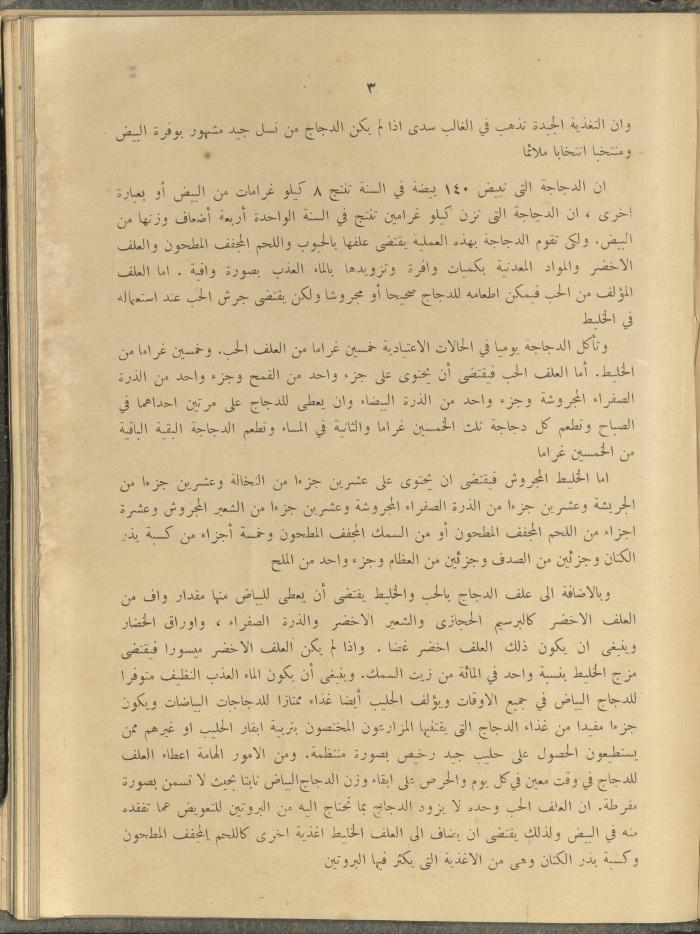 ٣
وان التغذية الجيدة تذهب في الغالب سدى اذا لم يكن الدجاج من نسل جيد مشهور بوفرة البيض
ومنتخبا انتخابا ملائما
ان الدجاجة التي تبيض ١٤٠ بيضة في السنة تنتج ٨ كيلو غرامات من البيض أو بعبارة
اخرى ، ان الدجاجة التي تزن كيلو غرامين تنتج في السنة الواحدة أربعة أضعاف وزنها من
البيض. ولكي تقوم الدجاجة بهذه العملية يقتضى علفها بالحبوب واللحم المجفف المطحون والعلف
الاخضر والمواد المعدنية بكميات وافرة وتزويدها بالماء العذب بصورة وافية . اما العلف
المؤلف من الحب فيمكن اطعامه للدجاج صحيحا أو مجروشا ولكن يقتضى جرش الحب عند استعماله
في الخليط
وتأكل الدجاجة يوميا في الحالات الاعتيادية خمسين غراما من العلف الحب. وخمسين غراما من
الخليط. أما العلف الحب فيقتضى أن يحتوى على جزء واحد من القمح وجزء واحد من الذرة
الصفراء المجروشة وجزء واحد من الذرة البيضاء وان يعطى للدجاج على مرتين احداهما في
الصباح وتطعم كل دجاجة ثلث الخمسين غراما والثانية في المساء وتطعم الدجاجة البقية الباقية
من الخمسين غراما
اما الخليط المجروش فيقتضى ان يحتوى على عشرين جزءا من النخالة وعشرين جزءا من
الجريشة وعشرين جزءا من الذرة الصفراء المجروشة وعشرين جزءا من الشعير المجروش وعشرة
اجزاء من اللحم المجفف المطحون أو من السمك المجفف المطحون وخمسة أجزاء من كسبة بذر
الكتان وجزئين من الصدف وجزئين من العظام وجزء واحد من الملح
وبالاضافة الى علف الدجاج بالحب والخليط يقتضى أن يعطى للبياض منها مقدار واف من
العلف الاخضر كالبرسيم الحجازى والشعير الاخضر والذرة الصفراء ، واوراق الخضار
وينبغى ان يكون ذلك العلف اخضر غضا . واذا لم يكن العلف الاخضر ميسورا فيقتضى
مزج الخليط بنسبة واحد في المائة من زيت السمك. وينبغى أن يكون الماء العذب النظيف متوفرا
للدجاج البياض في جميع الاوقات ويؤلف الحليب أيضا غذاء ممتازا للدجاجات البياضات ويكون
جزءا مفيدا من غذاء الدجاج التى يقتنيها المزارعون المختصون بتربية ابقار الحليب او غيرهم ممن
يستطيعون الحصول على حليب جيد رخيص بصورة منتظمة. ومن الامور الهامة اعطاء العلف
للدجاج في وقت معين في كل يوم والحرص على ابقاء وزن الدجاج البياض ثابتا بحيث لا تسمن بصورة
مفرطة. ان العلف الحب وحده لا يزود الدجاج بما تحتاج اليه من البروتين للتعويض عما تفقده
منه في البيض ولذلك يقتضى ان يضاف الى العلف الخليط اغذية اخرى كاللحم المجفف المطحون
وكسبة بذر الكتان وهى من الاغذية التي يكثر فيها البروتين